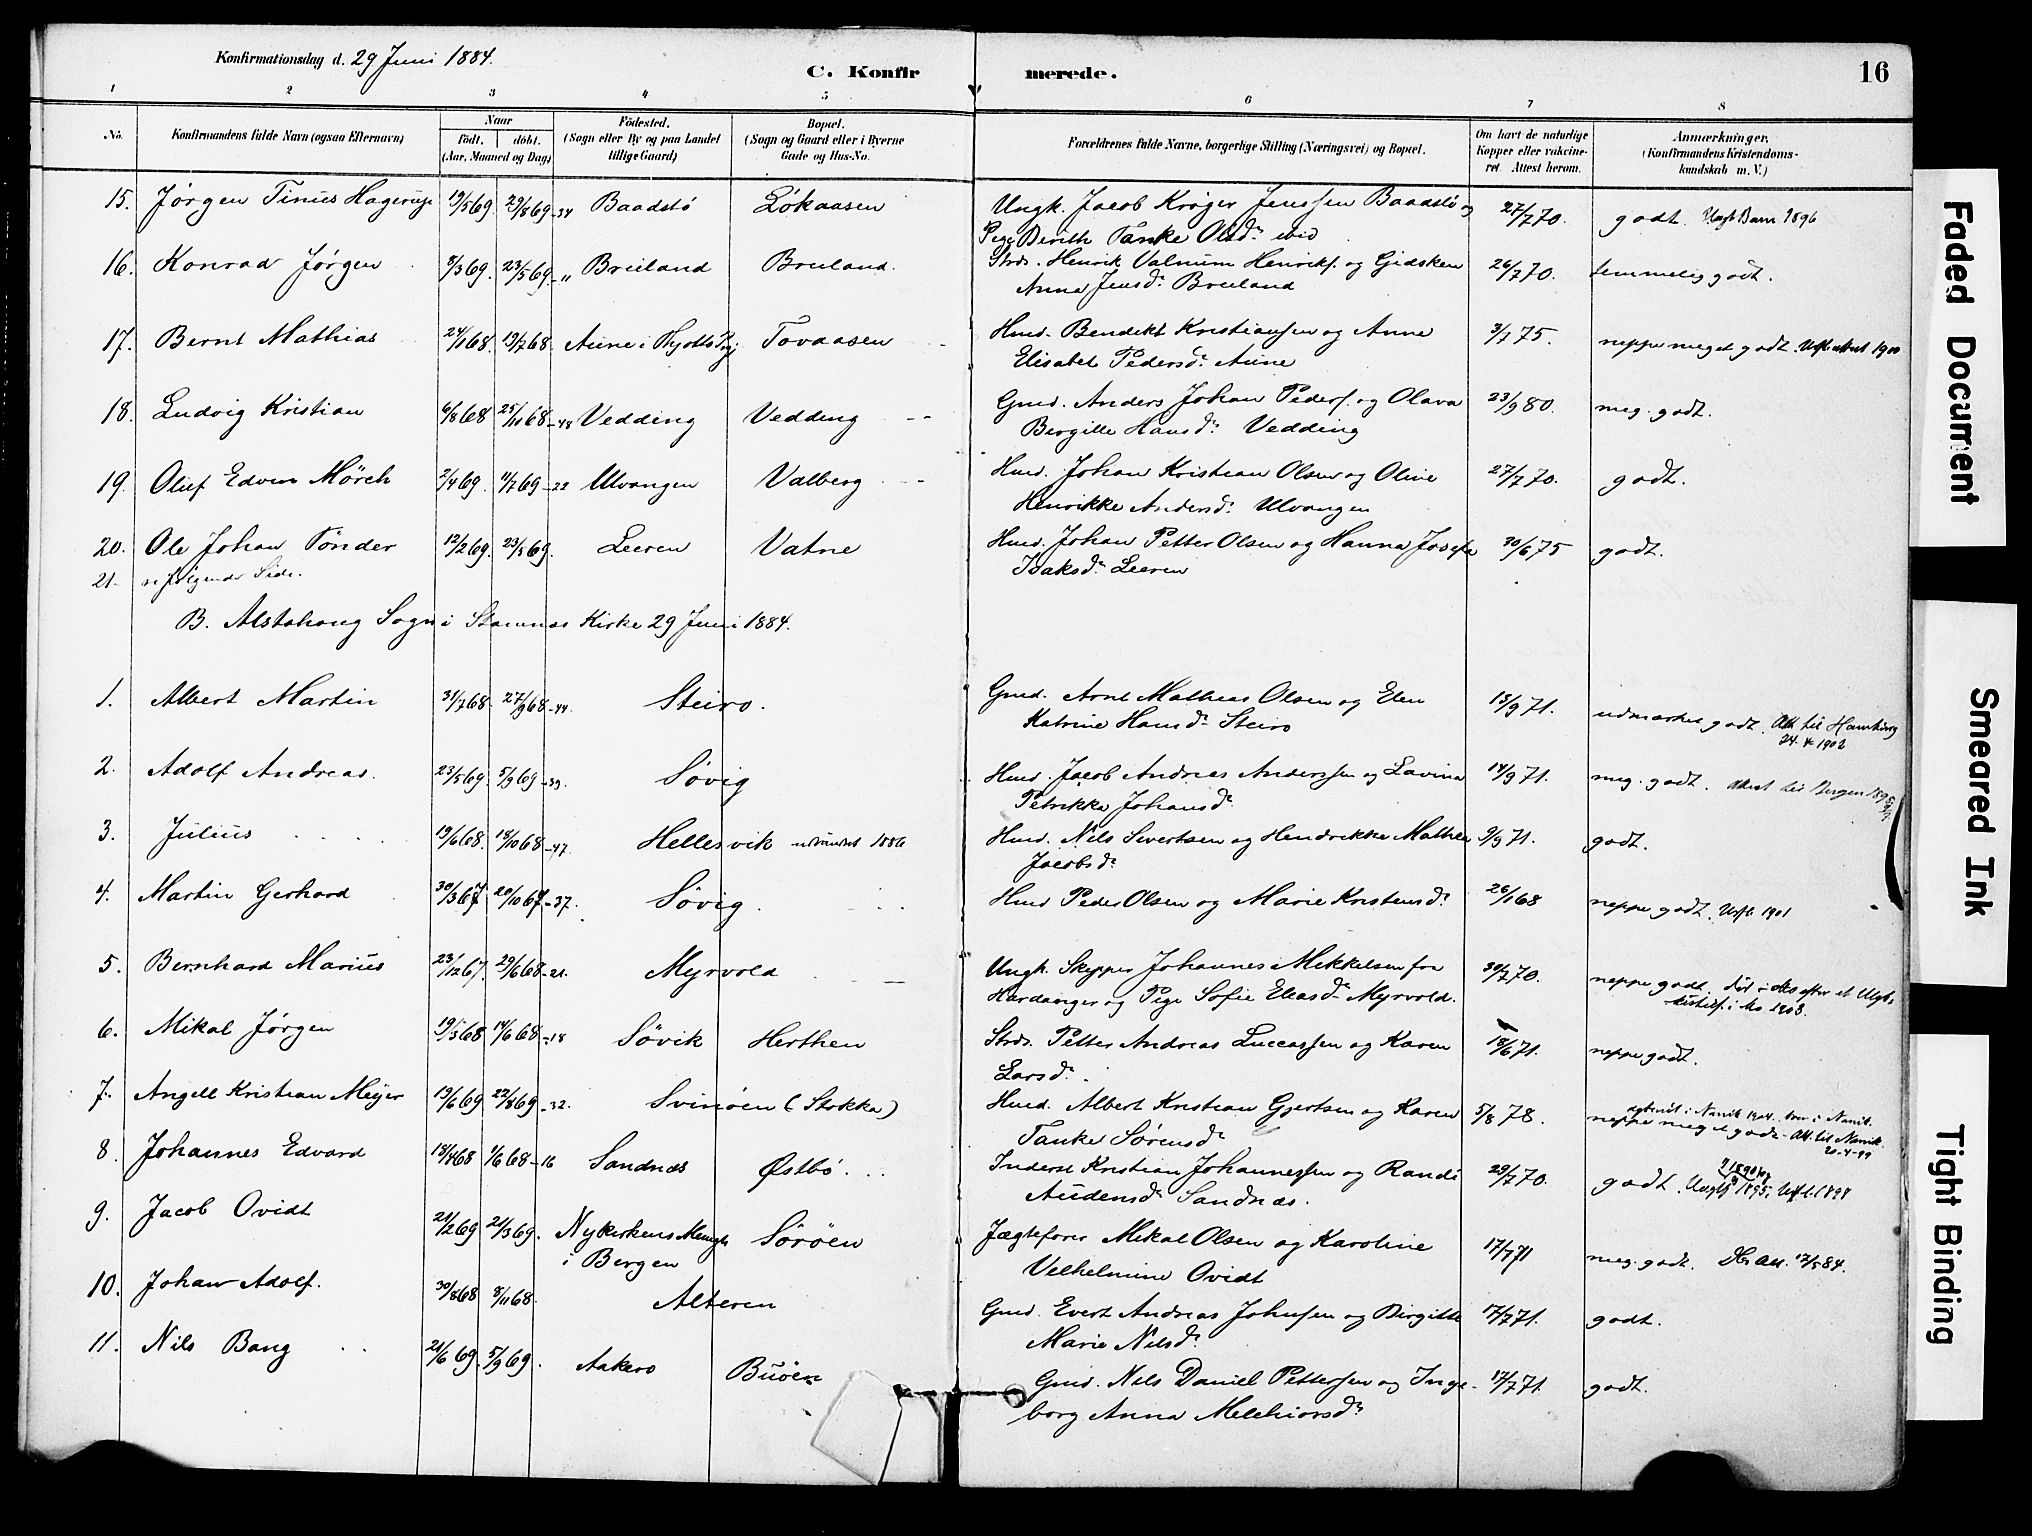 Konfirmationsdag d. 29 Juni 1884.
C. Konfirmerede.
16
1 2 3 4 5 6 7 8
No. Konfirmandens fulde Navn (ogsaa Efternavn) Naar födt. döbt. (Aar, Maaned og Dag) Födested. (Sogn eller By og paa Landet tillige Gaard) Bopæl. (Sogn og Gaard eller i Byerne Gade og Hus-No. Forældrenes fulde Navne, borgerlige Stilling (Næringsvei) og Bopæl. Om havt de naturlige Kopper eller vakcineret. Attest herom. Anmærkninger. (Konfirmandens Kristendomskundskab m. V.)
15. Jørgen Tinus Hagerup 19/5 69. 29/8 69 -34 Baadstö Lökaasen Ungk. Jacob Krøger Jenssen Baadstö og 27/7 70. godt. 1896
Pige Berith Tanke Olsdr. ibid
16. Konrad Jørgen 3/3 69. 23/5 69 -" Breiland Breiland. Strds. Henrik Valnum Henriks. og Gidsken 26/7 70. temmelig godt.
Anna Jensdr. Breiland
17. Bernt Mathias 24/1 68. 19/7 68. Aune i Tovaasen Hmd. Bendikt Kristiansen og Anne 3/7 75. neppe meget godt. 1900
Elisabet Pedersdr. Aune
18. Ludvig Kristian 6/8 68 25/11 68 -48 Vedding Vedding Gmd. Anders Johan Peders. og Olava 23/9 80. meg. godt.
Bergitte Hansdr. Vedding
19. Oluf Edvin Mörch 2/4 69. 11/7 69 -22 Ulvangen Valberg Hmd. Johan Kristian Olsen og Oline 27/7 70. godt.
Henrikke Andersdr. Ulvangen
20. Ole Johan Tönder 12/2 69. 23/5 69. Leeren Vatne Hmd. Johan Petter Olsen og Hanna Josefa 30/6 75 godt.
21. følgende Side. Isaksdr. Leeren
B. Alstahoug Sogn i Stamnæs Kirke 29 Juni 1884.
1. Albert Martin 31/7 68. 27/9 68 -44. Steiro. Gmd. Arnt Mathias Olsen og Elen 13/9 71. udmærket godt. Att. til Hamburg
Katrine Hansdr. Steiro 24. 4 1902
2. Adolf Andreas. 23/5 69. 5/9 69 -39. Søvig Hmd. Jacob Andreas Anderssen og Lavina 14/9 71. meg. godt. Attest til Bergen
Petrikka Johansdr.
3. Julius 19/6 68. 18/10 68 -47. Hellesvik udvandret 1886 Hmd. Nils Sivertsen og Hendrikke Mathea 9/9 71. godt.
Jacobsdr.
4. Martin Gerhard 30/3 67 20/10 67 -37. Søvig. Hmd Peder Olsen og Marie Kristensdr. 26/1 68 neppe godt. 1901
5. Bernhard Marius 23/12 67. 29/6 68 -21. Myrvold Ungk. Skipper Johannes Mikkelsen fra 30/7 70. neppe godt.
Hardanger og Pige Sofie Eliasdr. Myrvold. 1903.
6. Mikal Jørgen 19/3 68 14/6 68 -18 Søvik Herthen Strds. Petter Andreas Luccassen og Karen 18/6 71. neppe godt.
Larsdr.
7. Angell Kristian Meyer 19/6 69 22/8 69 -32. Svinöen (Stokka) Hmd. Albert Kristian Gjertsen og Karen 5/8 78. neppe meget godt. Att. til Narvik
Tanke Sørensdr. 20-4-99
8. Johannes Edvard 18/4 68 1/6 68 -16 Sandnæs Østbö Inderst Kristian Johannessen og Randi 29/7 70. godt. 1895;
Audensdr. Sandnæs.
9. Jacob Ovidt 21/2 69 21/3 69. Nykirkens Menigh. Söröen Jægtefører Mikal Olsen og Karoline 17/7 71 meg. godt. 12/5 84.
i Bergen Velhelmine Ovidt
10. Johan Adolf. 30/8 68 8/11 68. Alteren Gmd. Evert Andreas Johnsen og Birgitte 17/7 71. godt.
Marie Nilsdr.
11. Nils Bang 21/6 69. 5/9 69. Aakero Buöen Gmd. Nils Daniel Pettersen og Inge- 17/7 71. godt.
borg Anna Melchiorsdr.
Faded Document
Smeared Ink
Tight Binding